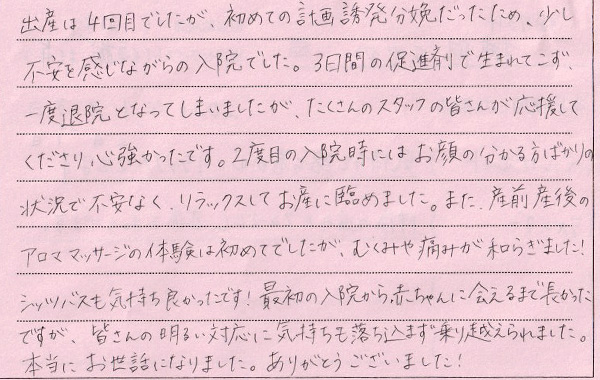 出産は4回目でしたが、初めての計画誘発分娩だったため、少し
不安を感じながらの入院でした。3日間の促進剤で生まれてこず、
一度退院となってしまいましたが、たくさんのスタッフの皆さんが応援して
くださり、心強かったです。2度目の入院時にはお顔の分かる方ばかりの
状況で不安なく、リラックスしてお産に臨めました。また、産前産後の
アロママッサージの体験は初めてでしたが、むくみや痛みが和らぎました!
シッツバスも気持ち良かったです!最初の入院から赤ちゃんに会えるまで長かった
ですが、皆さんの明るい対応に気持ちも落ち込まず乗り越えられました。
本当にお世話になりました。ありがとうございました!